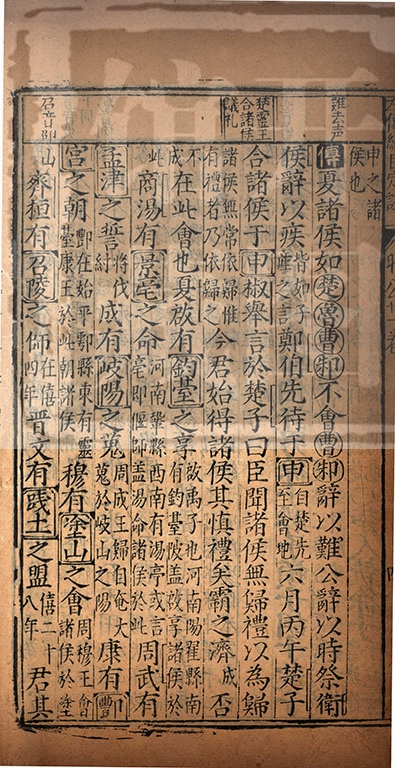 申之諸
侯也
傳夏諸侯如楚魯曹邾不會曹邾辭以難公辭以時祭衛
侯辭以疾皆如子產之言鄭伯先待于申自楚先至會地六月丙午楚子
合諸侯于申椒舉言於楚子曰臣聞諸侯無歸禮以為歸
諸侯無常依歸惟有禮者乃依歸之今君始得諸侯其慎禮矣霸之濟成否
不成在此會也夏啟有鈞臺之享啟禹子也河南陽翟縣南有鈞臺陂蓋啟享諸侯於
此商湯有景亳之命河南鞏縣西南有湯亭或言亳即偃師蓋湯命諸侯於此周武有
孟津之誓將伐紂成有岐陽之蒐周成王歸自奄大蒐於岐山之陽康有酆
宮之朝酆在始平鄠縣東有靈臺康王於此朝諸侯穆有塗山之會周穆王會諸侯於塗
山齊桓有召陵之師在僖四年晉文有踐土之盟僖二十八年君其
難去声
楚靈王
合諸侯
議礼
召音卲